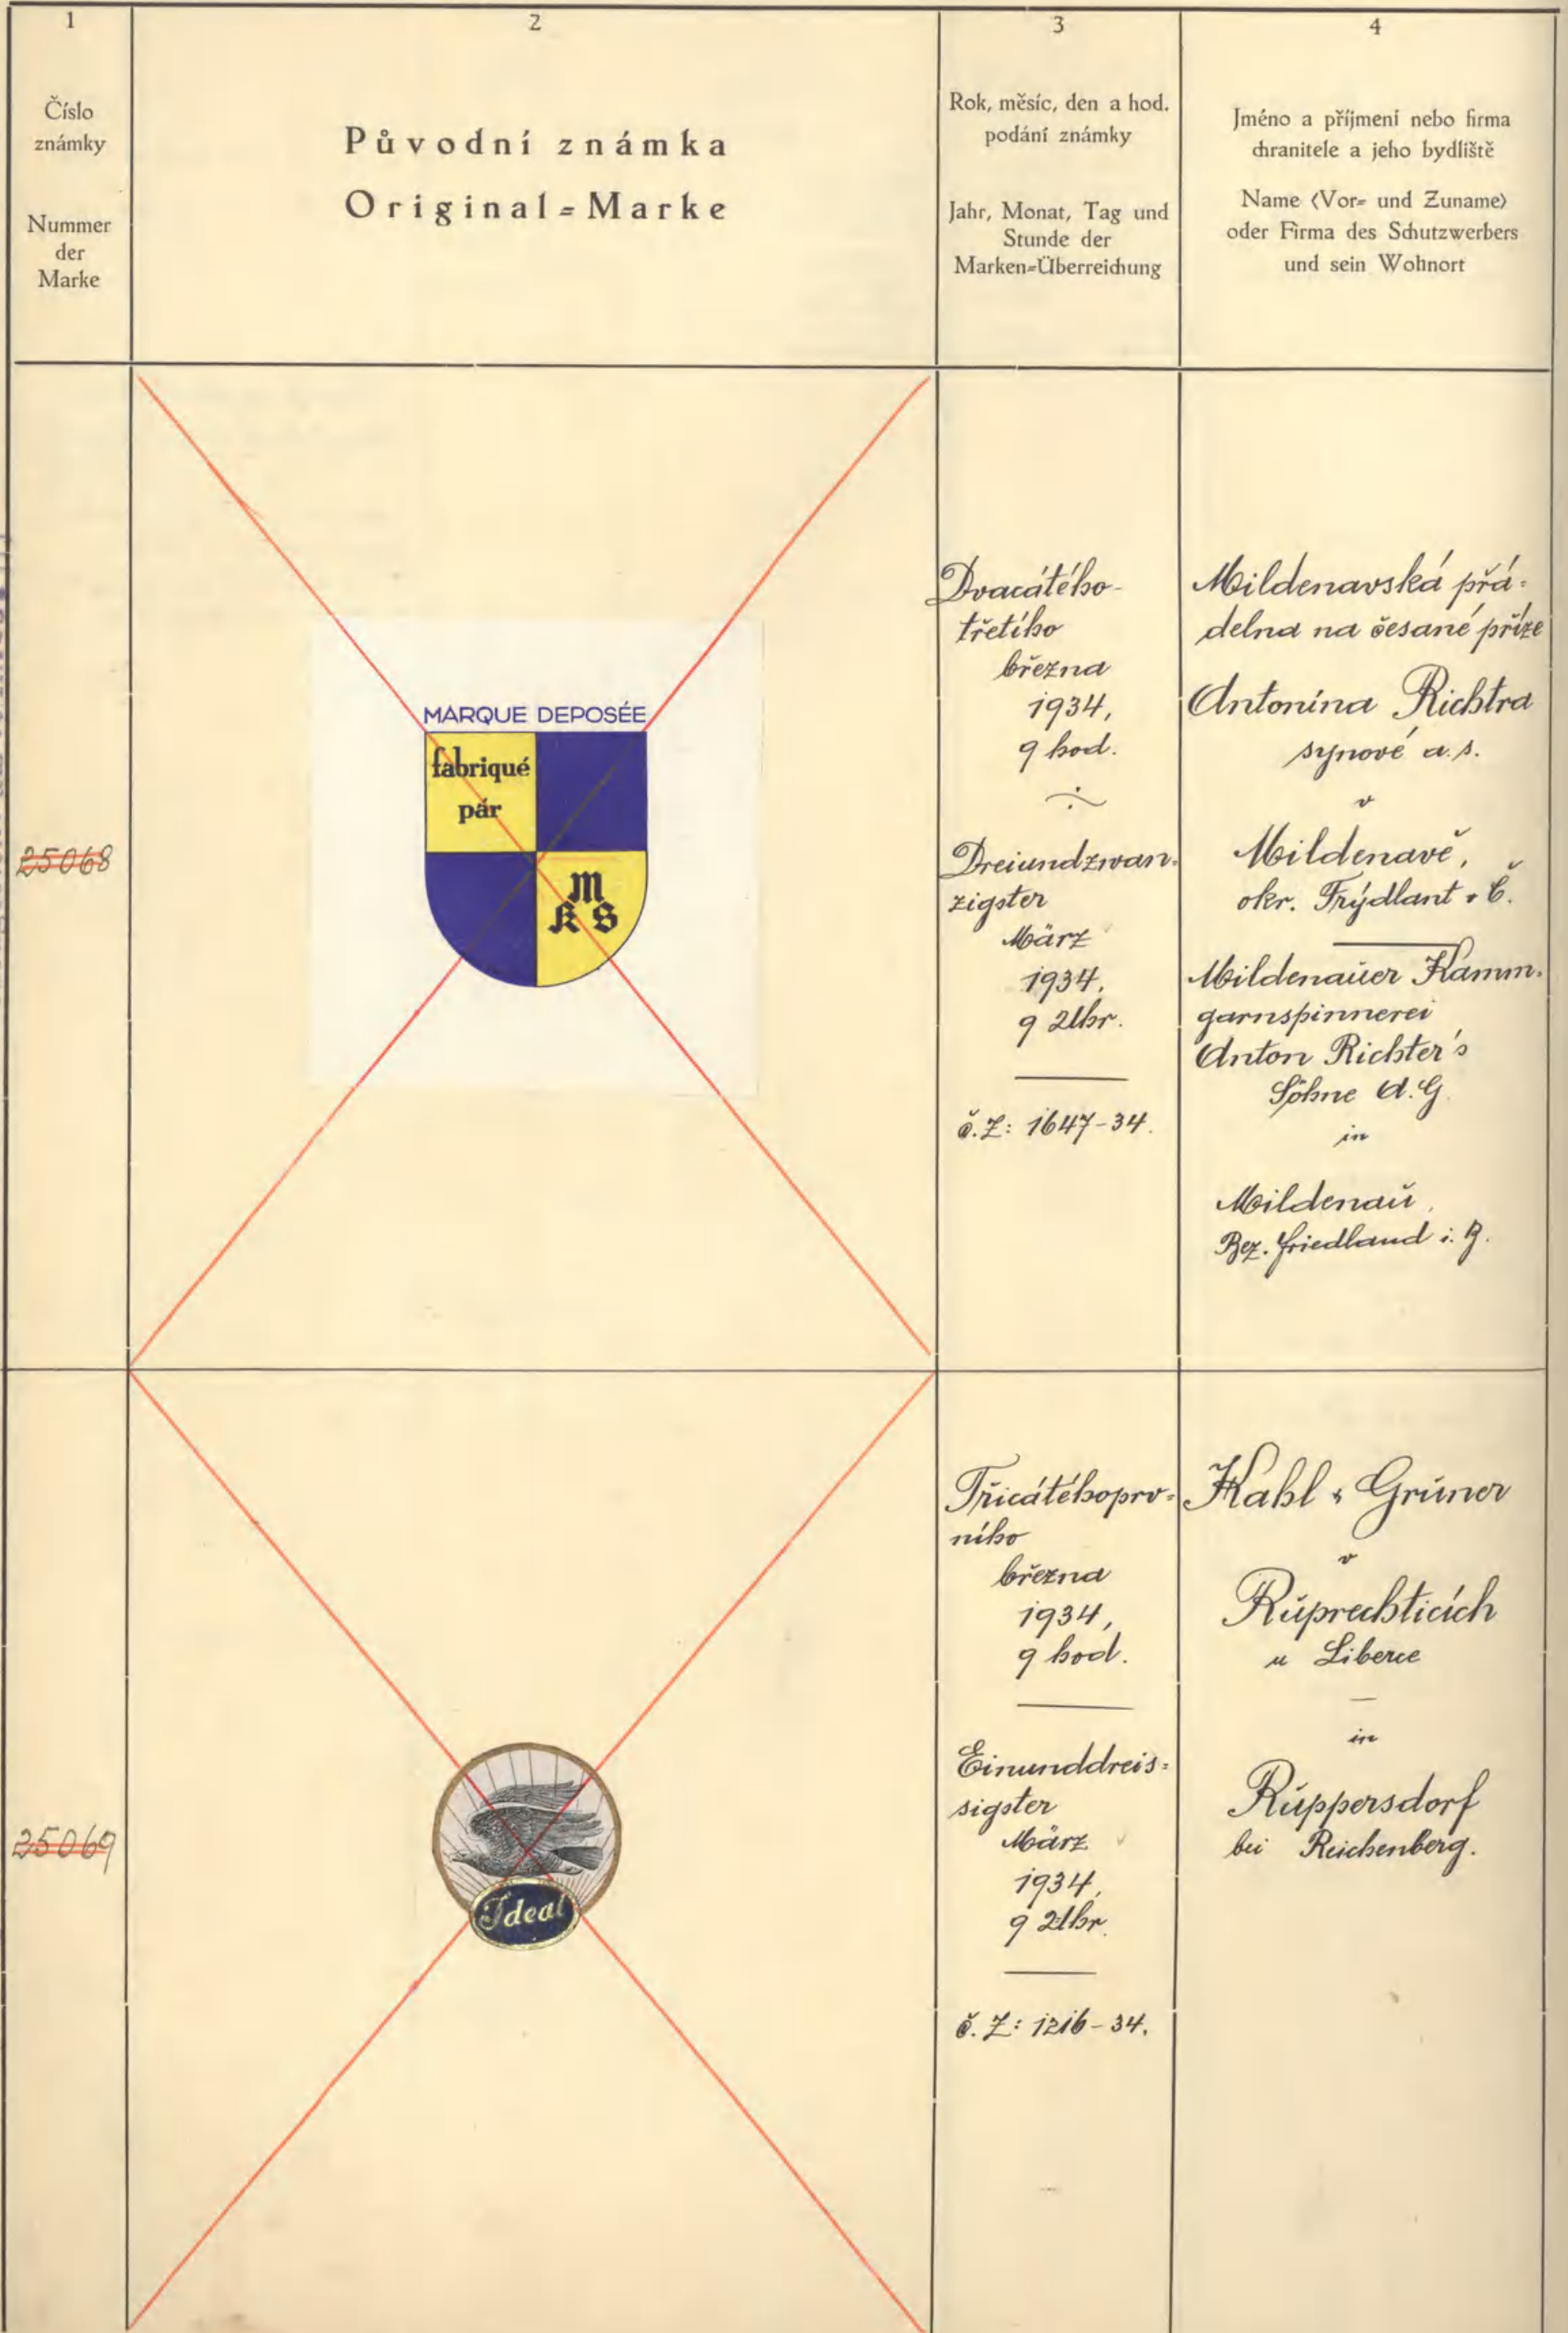 1
Číslo
známky
Nummer
der
Marke
2
Původní známka
Original=Marke
3
Rok, měsíc, den a hod.
podání známky
Jahr, Monat, Tag und
Stunde der
Marken=Überreichung
4
Jméno a příjmení nebo firma
chranitele a jeho bydliště
Name (Vor= und Zuname)
oder Firma des Schutzwerbers
und sein Wohnort
25068
MARQUE DEPOSÉE
fabriqué
pár
M
K S
Dvacátého-
třetího
března
1934,
9 hod.
Dreiundzwan-
zigster
März
1934,
9 Uhr.
č.Z: 1647-34.
Mildenavská přá-
delna na česané příze
Antonína Richtra
synové a.s.
v
Mildenavě,
okr. Frýdlant v Č.
Mildenauer Kamm-
garnspinnerei
Anton Richter's
Söhne A.G.
in
Mildenau,
Bez. Friedland i. B.
25069
Ideal
Třicátéhoprv-
ního
března
1934,
9 hod.
Einunddreis-
sigster
März
1934,
9 Uhr.
č.Z: 1216-34.
Kahl & Gruner
v
Ruprechticích
u Liberce
in
Ruppersdorf
bei Reichenberg.